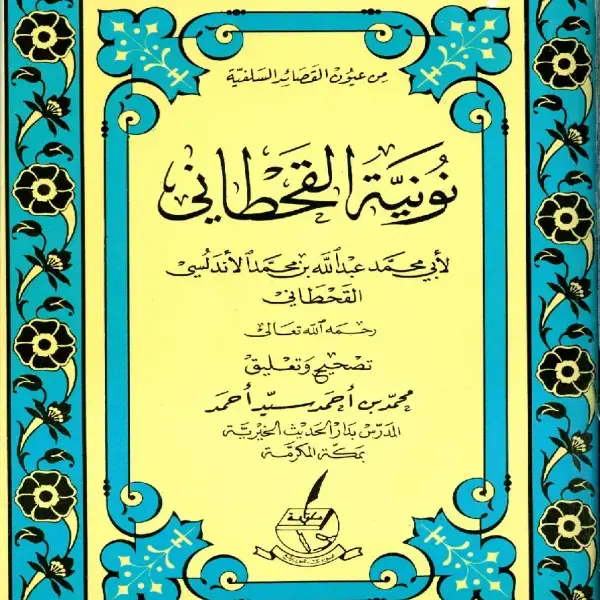 من عيون القصائد السلفية
نُونيَّة القَحْطَاني
لأبي محمَّد عبدالله بن محمَّد الأندلُسي
القَحْطَاني
رحمه الله تعالى
تصْحيح وَتعْليق
محمّد بن أحمد سيّد أحمد
المدَرّس بدَار الحَديث الخيْريّة
بمكّة المكرمَّة